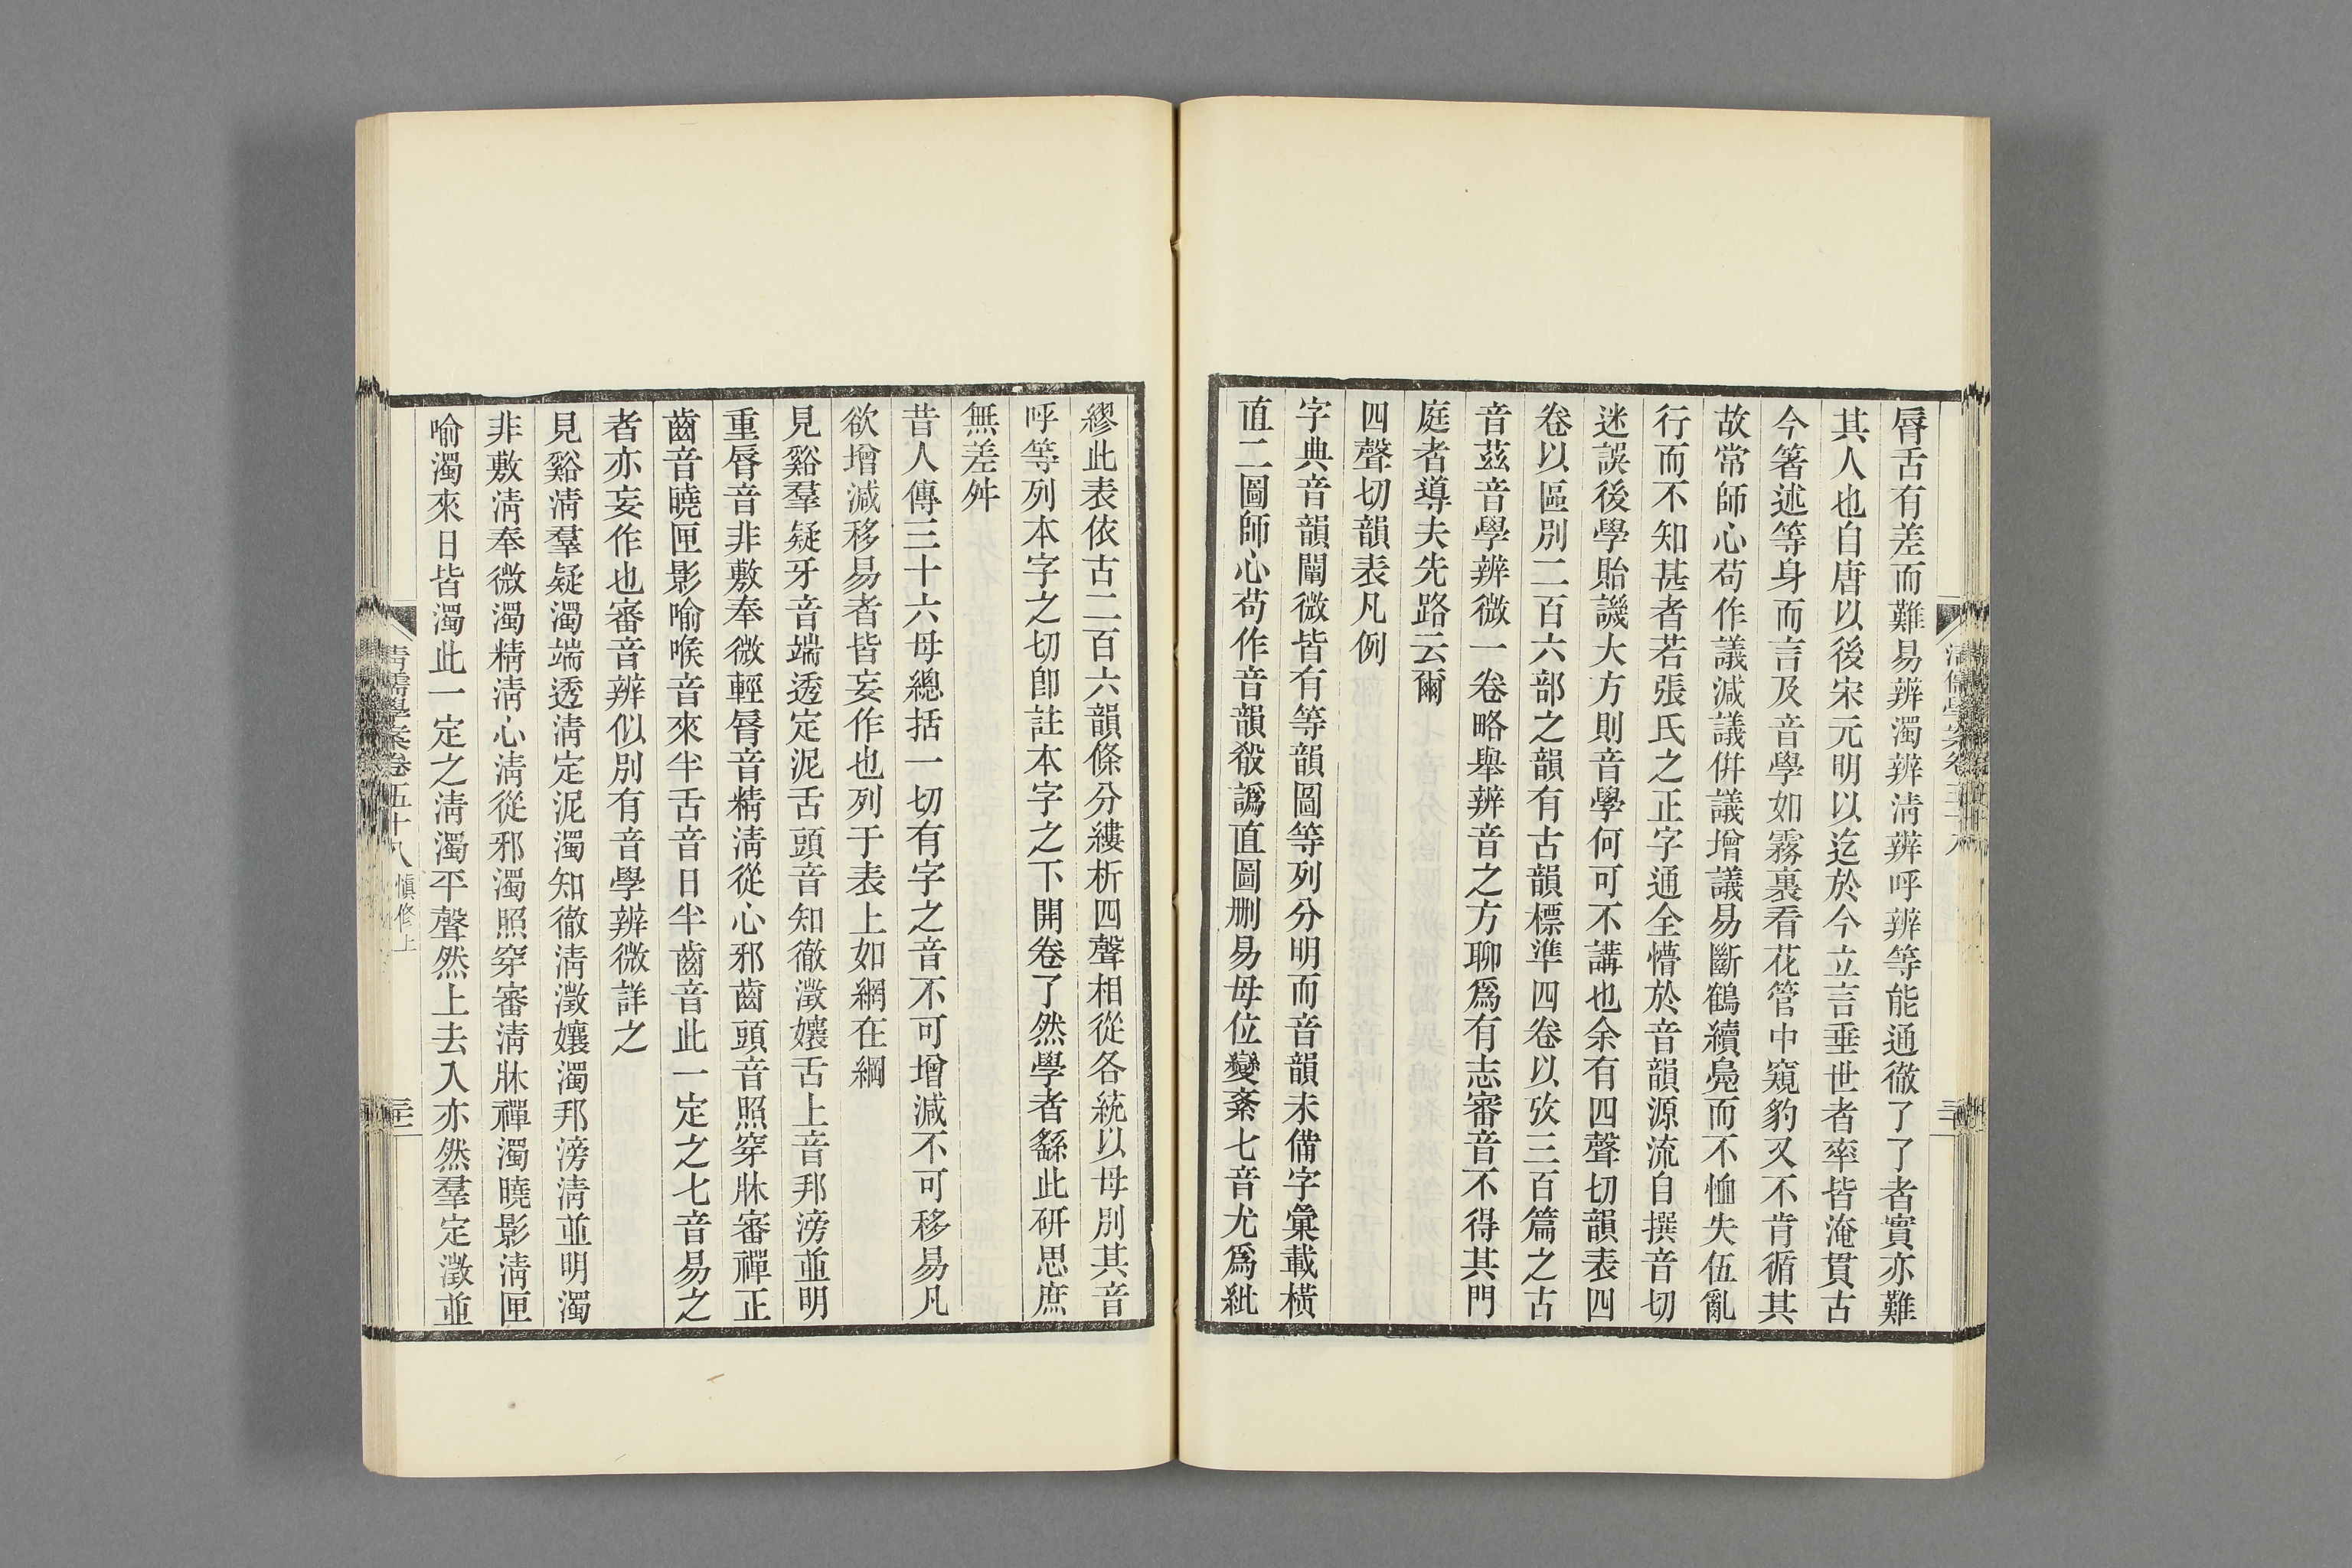 脣舌有差而難易辨濁辨淸辨呼辨等能通徹了了者實亦難
其人也自唐以後宋元明以迄於今立言垂世者率皆淹貫古
今箸述等身而言及音學如霧裏看花管中窺豹又不肯循其
故常師心苟作議減議倂議增議易斷鶴續鳧而不恤失伍亂
行而不知甚者若張氏之正字通全懵於音韻源流自撰音切
迷誤後學貽譏大方則音學何可不講也余有四聲切韻表四
卷以區別二百六部之韻有古韻標準四卷以攷三百篇之古
音茲音學辨微一卷略舉辨音之方聊爲有志審音不得其門
庭者導夫先路云爾
四聲切韻表凡例
字典音韻闡微皆有等韻圖等列分明而音韻未備字彙載橫
直二圖師心苟作音韻殽譌直圖刪易母位變紊七音尤爲紕
繆此表依古二百六韻條分縷析四聲相從各統以母別其音
呼等列本字之切卽註本字之下開卷了然學者繇此研思庶
無差舛
昔人傳三十六母總括一切有字之音不可增減不可移易凡
欲增減移易者皆妄作也列于表上如網在綱
見谿羣疑牙音端透定泥舌頭音知徹澂孃舌上音邦滂並明
重脣音非敷奉微輕脣音精淸從心邪齒頭音照穿牀審禪正
齒音曉匣影喻喉音來半舌音日半齒音此一定之七音易之
者亦妄作也審音辨似別有音學辨微詳之
見谿淸羣疑濁端透淸定泥濁知徹淸澂孃濁邦滂淸並明濁
非敷淸奉微濁精淸心淸從邪濁照穿審淸牀禪濁曉影淸匣
喻濁來日皆濁此一定之淸濁平聲然上去入亦然羣定澂並
清儒學案卷五十八 愼修上